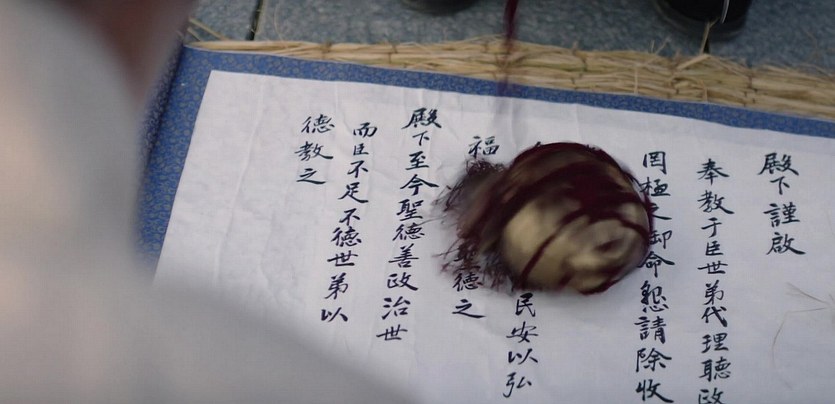 殿下謹啟
奉教于臣世弟代理聽政
罔極之御命懇請除收
民安以弘
福 聖德之
殿下至今聖德善政治世
而臣不足不德世弟以
德教之